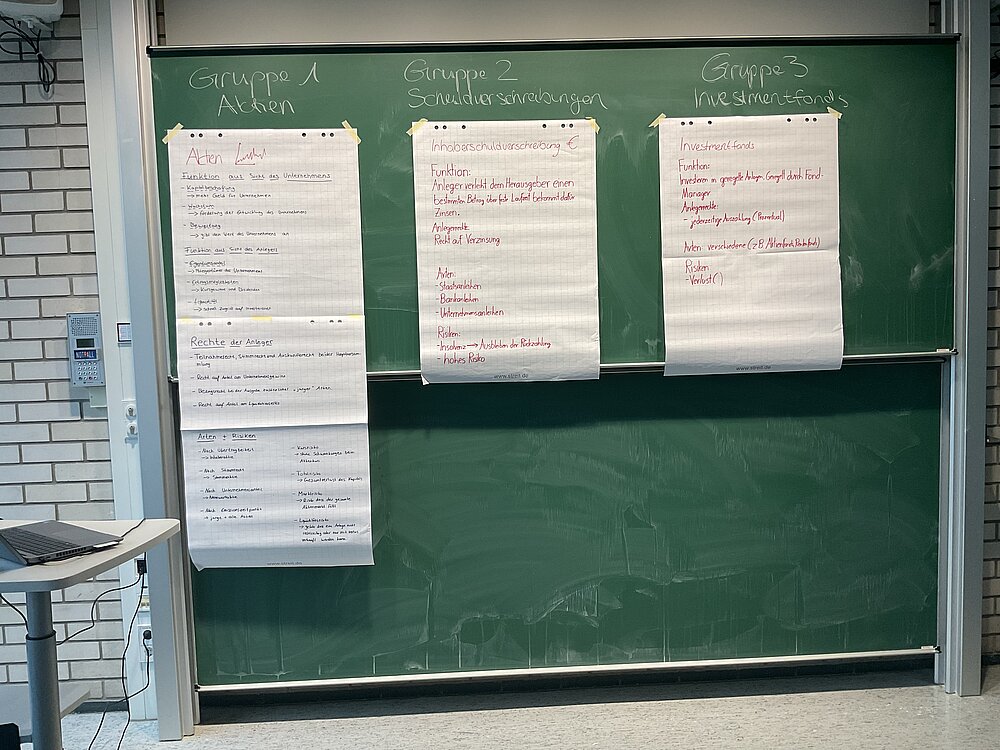 Gruppe 1
Aktien
Gruppe 2
Schuldverschreibungen
Gruppe 3
Investmentfonds
Akten
Funktion aus Sicht des Unternehmens
- Kapitalbeschaffung
→ mehr Geld für Unternehmen
- Wachstum
→ Förderung der Entwicklung des Unternehmens
→ gibt den Wert des Unternehmens an
Funktion aus Sicht des Anlegers
→ Miteigentümer des Unternehmens
→ Kursgewinne und Dividenden
- Liquidität
Rechte des Anlegers
- Teilnahmerecht, Stimmrecht und Auskunftsrecht bei der Hauptversammlung
- Recht auf Anteil am Unternehmensgewinn
- Bezugsrecht bei der Ausgabe "junger" Aktien
- Recht auf Anteil am Liquidationserlös
Arten + Risiken
- Nach Übertragbarkeit
→ Inhaberaktie
- Nach Stimmrecht
→ Stammaktie
- Nach Unternehmensanteil
- Nach Emissionszeitpunkt
→ junge + alte Aktien
- Kursrisiko
- Totalrisiko
→ Gesamtverlust des Kapitals
- Marktrisiko
→ Risiko dass der gesamte
Aktienmarkt fällt
- Liquiditätsrisiko
www.streit.de
Inhaberschuldverschreibung €
Funktion:
Anleger verleiht dem Herausgeber einen
bestimmten Betrag über feste Laufzeit bekommt dafür
Zinsen.
Anlegerrechte
Recht auf Verzinsung
Arten:
- Staatsanleihen
- Bankanleihen
- Unternehmensanleihen
Risiken:
- Insolvenz → Ausbleiben der Rückzahlung
- hohes Risiko
www.streit.de
Investmentfonds
Funktion:
Investieren in geregelte Anlagen. Geregelt durch Fond-
Manager
Anlegerrechte:
- jederzeitige Auszahlung (Prozentual)
Arten: verschiedene (z.B. Aktienfonds, Rentenfonds)
Risiken
- Verlust (!)
www.streit.de
NOTRUF